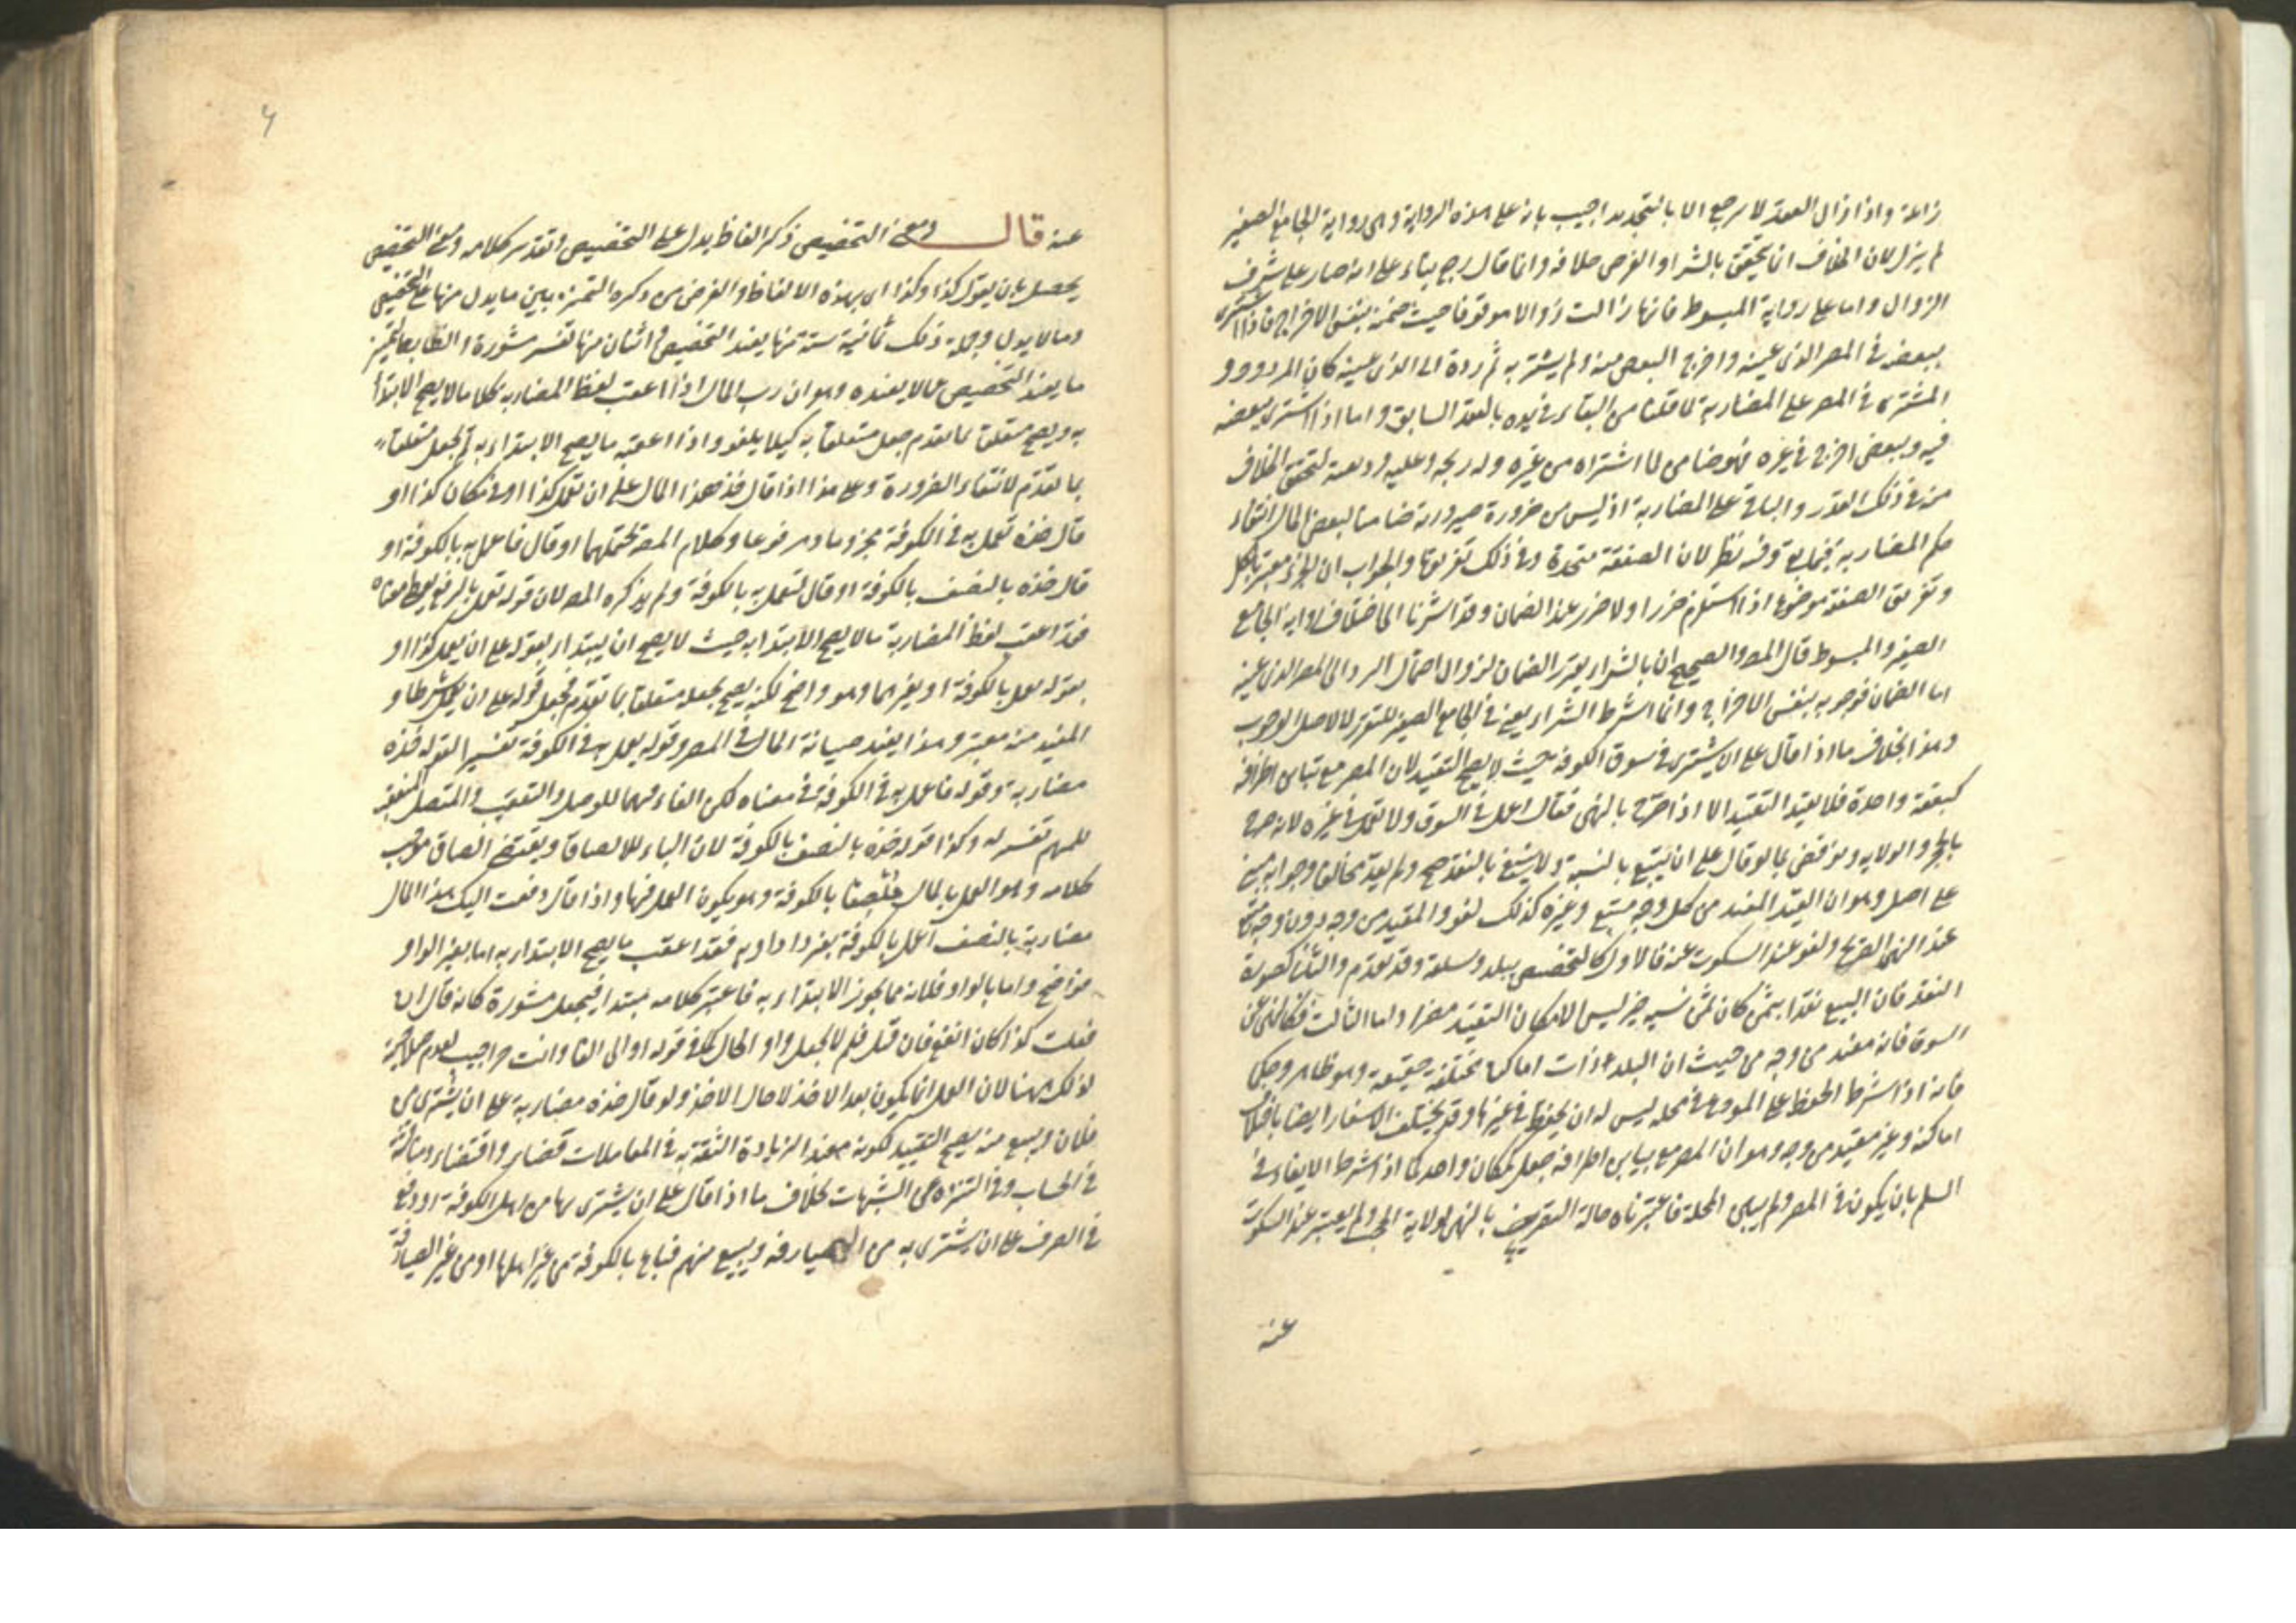 زائلة واذا زال العقد لا يرجع الا بالتجديد اجيب بانه على هذه الرواية وهى رواية الجامع الصغير
لم يزل لان الخلاف انما يتحقق بالشراء والفرض خلافه وانما قال رجع بناء على انه صار على شرف
الزوال واما على رواية المبسوط فانها زالت زوالا موقوفا حيث ضمنه بنفس الاخراج فاذا اشترى
ببعضه فى المصر الذى عينه واخرج البعض منه ولم يشتر به ثم رده الى الذى عينه كان المردود و
المشترى فى المصر على المضاربة لما قلنا من البقاء فى يده بالعقد السابق واما اذا اشترى ببعضه
فيه وببعض اخر فى غيره فهو ضامن لما اشتراه من غيره وله ربحه وعليه وديعته لتحقق الخلاف
منه فى ذلك القدر والباقى على المضاربة اذ ليس من ضرورة صيرورته ضامنا لبعض المال انتفاء
حكم المضاربة فيما بقى وفيه نظر لان الصفقة متحدة وفى ذلك تفريقها والجواب ان الجزء معتبر بالكل
وتفريق الصفقة موضوع اذا استلزم ضررا ولا ضرر عند الضمان وقد اشرنا الى اختلاف رواية الجامع
الصغير والمبسوط قال المصـ والصحيح ان بالشراء يتقرر الضمان لزوال احتمال الرد الى المصر الذى عينه
اما الضمان فوجوبه بنفس الاخراج وانما اشترط الشراء يعنى فى الجامع الصغير للتقرر لا لاصل الوجوب
وهذا بخلاف ما اذا قال على ان يشترى فى سوق الكوفة حيث لا يصح التقييد لان المصر مع تباين اطرافه
كبقعة واحدة فلا يفيد التقييد الا اذا صرح بالنهى فقال اعمل فى السوق ولا تعمل فى غيره لانه صرح
بالحجر والولاية ونوقض بما لو قال على ان تبيع بالنسية ولا تبيع بالنقد صح ولم يعد مخالفا وجوابه مبنى
على اصل وهو ان القيد المفيد من كل وجه متبع وغيره كذلك لغو والمقيد من وجه دون وجه متبع
عند النهى الصريح ولغو عند السكوت عنه فالاول كالتخصيص ببلد وسلعة وقد تقدم والثانى كصورة
النقد فان البيع نقدا بثمن كان ثمن نسية خير ليس الا فكان التقييد مضرا واما الثالث فكالنهى عن
السوق فانه مفيد من وجه من حيث ان البلد ذات اماكن مختلفة حقيقة وهو ظاهر وحكما
فانه اذا شرط الحفظ على المودع فى محله ليس له ان يحفظ فى غيرها وقد يختلف الاسعار ايضا باختلاف
اماكنه وغير مقيد من وجه وهو ان المصر مع تباين اطرافه جعل كمكان واحد كما اذا شرط الايفاء فى
السلم بان يكون فى المصر ولم يبين المحلة فاعتبرناه حالة التصريح بالنهى لولاية الحجر ولم يعتبر عند السكوت
عنه
عنه قال ومعنى التخصيص ذكر الفاظ يدل على التخصيص وتقدير كلامه ومعنى التخصيص
يحصل بان يقول كذا وكذا اى بهذه الالفاظ والغرض من ذكره التمييز بين ما يدل منها على التخصيص
وما لا يدل وجملة ذلك ثمانية ستة منها يفيد التخصيص واثنان منها تفسر مشورة والضابط لتمييز
ما يفيد التخصيص عما لا يفيده وهو ان رب المال اذا اعقب لفظ المضاربة كلاما لا يصح الابتداء
به ويصح متعلقا بما تقدم جعل متعلقا به كيلا يلغو واذا اعقبه ما يصح الابتداء به لم يجعل متعلقا
بما تقدم لانتفاء الضرورة وعلى هذا اذا قال خذ هذا المال على ان تعمل كذا او فى مكان كذا او
قال خذه تعمل به فى الكوفة مجزوما ومرفوعا وكلام المصـ يحتملهما او قال فاعمل به بالكوفة او
قال خذه بالنصف بالكوفة او قال لتعمل به بالكوفة ولم يذكره المصـ لان قوله تعمل بالرفع يعطى معناه
فقد اعقب لفظ المضاربة ما لا يصح الابتداء به حيث لا يصح ان يبتداء بقوله على ان يعمل كذا او
بقوله يعمل بالكوفة او بغيرهما وهو واضح لكنه يصح بجعله متعلقا بما تقدم فيجعل قوله على ان يعمل شرطا و
المفيد منه معتبر وهذا يفيد صيانة المال فى المصر وقوله يعمل به فى الكوفة تفسير القوله خذه
مضاربة وقوله فاعمل به فى الكوفة فى معناه لكن الفاء فيهما للوصل والتعقيب والمتصل المتعقب
للمبهم تفسير له وكذا قوله خذه بالنصف بالكوفة لان الباء للالصاق ويقتضى الصاق موجب
كلامه وهو العمل بالمال ملتصقا بالكوفة وهو يكون العمل فيها واذا قال دفعت اليك هذا المال
مضاربة بالنصف اعمل بالكوفة بغير واو او به فقد اعقب ما يصح الابتداء به اما بغير الواو
فواضح واما بالواو فلانه مما يجوز الابتداء به فاعتبر كلامه مبتداء فيجعل مشورة كانه قال ان
فعلت كذا كان انفع فان قيل فلم لا يجعل واو الحال كما فى قوله اد الى الفا وانت حر اجيب بعدم صلاحية
لذلك ههنا لان العمل انما يكون بعد الاخذ لا حال الاخذ ولو قال خذه مضاربة على ان يشترى من
فلان ويبيع منه يصح التقييد لكونه مفيدا لزيادة الثقة به فى المعاملات قضاء واقتضاء ومناقشة
فى الحساب وفى التنزه عن الشبهات بخلاف ما اذا قال على ان يشترى بها من اهل الكوفة او دفع
فى الصرف على ان يشترى به من الصيارفة ويبيع منهم فباع بالكوفة من غير اهلها او من غير الصيارفة